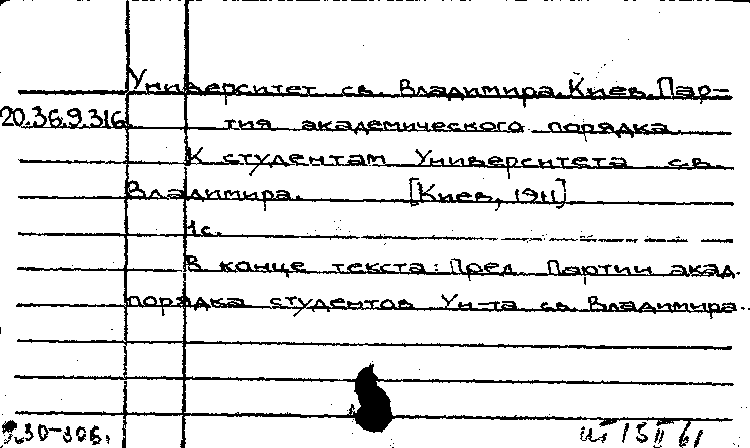 Университет св. Владимира. Киев. Пар-
20.36.9.316
тия академического порядка.
К студентам Университета св.
Владимира. [Киев, 1911]
1 с.
В конце текста: Пред. Партии акад.
порядка студентов Ун-та св. Владимира.